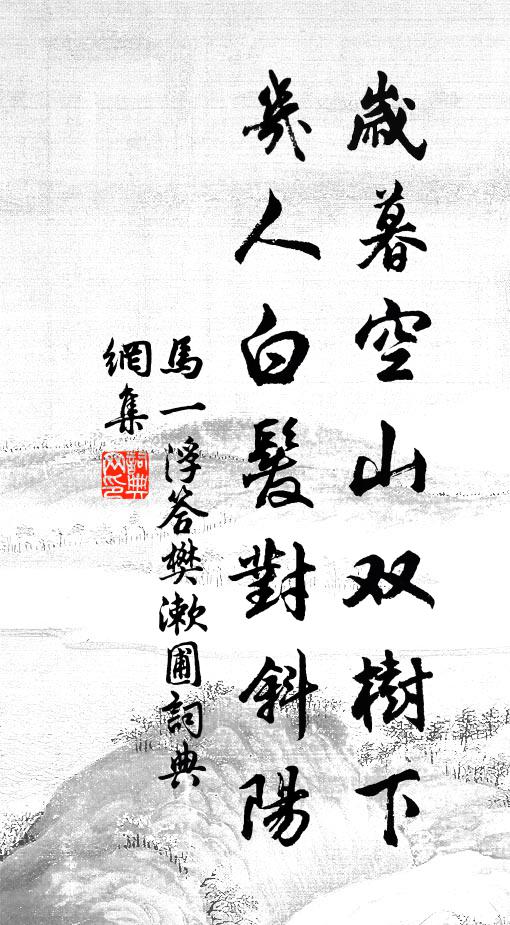 歲暮空山双樹下
幾人白髮對斜陽
馬一浮答樊漱圃詞典
網集
詞典网印